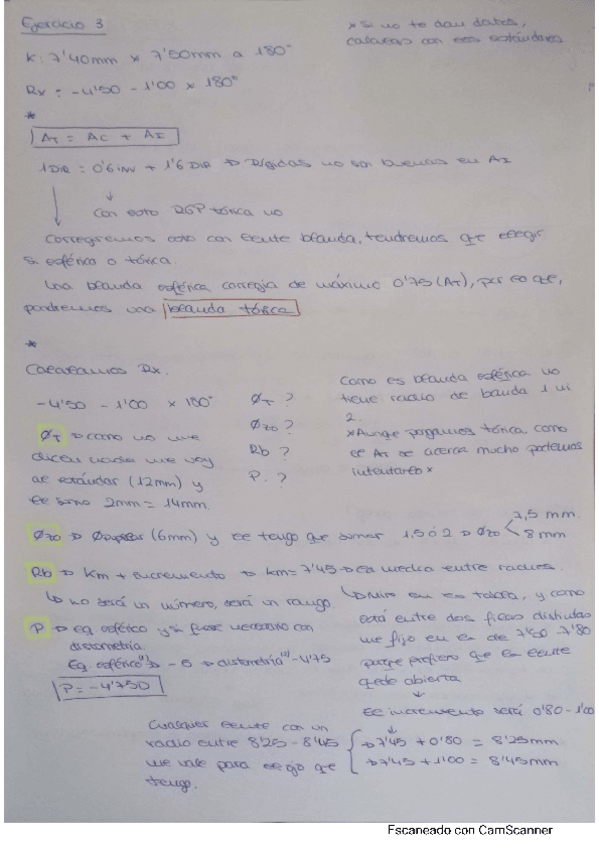 Ejercicio 3
* Si no te dan datos,
calculas con los estándares
K: 7'40mm x 7'50mm a 180°
Rx: -4'50 -1'00 x 180°
*
AT = AC + AI
1 DIR = 0'6 INV + 1'6 DIR → Rígidas no son buenas en AI
Con esto RGP tórica no
Corregiremos esto con lente blanda, tendremos que elegir
si esférica o tórica.
Una blanda esférica corregia de máximo 0'75 (AT), por lo que,
pondremos una blanda tórica
*
Calculamos Rx.
-4'50 -1'00 x 180°
ØT → como no me
dicen nada me voy
al estándar (12mm) y
le sumo 2mm = 14mm.
ØT ?
Øzo ?
Rb ?
P. ?
Como es blanda esférica no
tiene radio de banda 1 ni
2.
*Aunque pongamos tórica, como
el AT se acerca mucho podemos
intentarlo*
Øzo → Øpupilar (6mm) y le tengo que sumar 1,5 ó 2 → Øzo
7,5 mm.
8 mm
Rb → Km + incremento → Km = 7'45 → La media entre radios.
↳ no será un número, será un rango.
↳ Miro en la tabla, y como
está entre dos filas distintas
me fijo en la de 7'50 - 7'80
porque prefiero que la lente
quede abierta
P → Eq esférico y si fuese necesario con
distometría.
Eq esférico → -5 → distometría -4'75
P = -4'75D
El incremento será 0'80 - 1'00
Cualquier lente con un
radio entre 8'25 - 8'45
me vale para el ojo que
tengo.
→ 7'45 + 0'80 = 8'25mm
→ 7'45 + 1'00 = 8'45mm
Escaneado con CamScanner